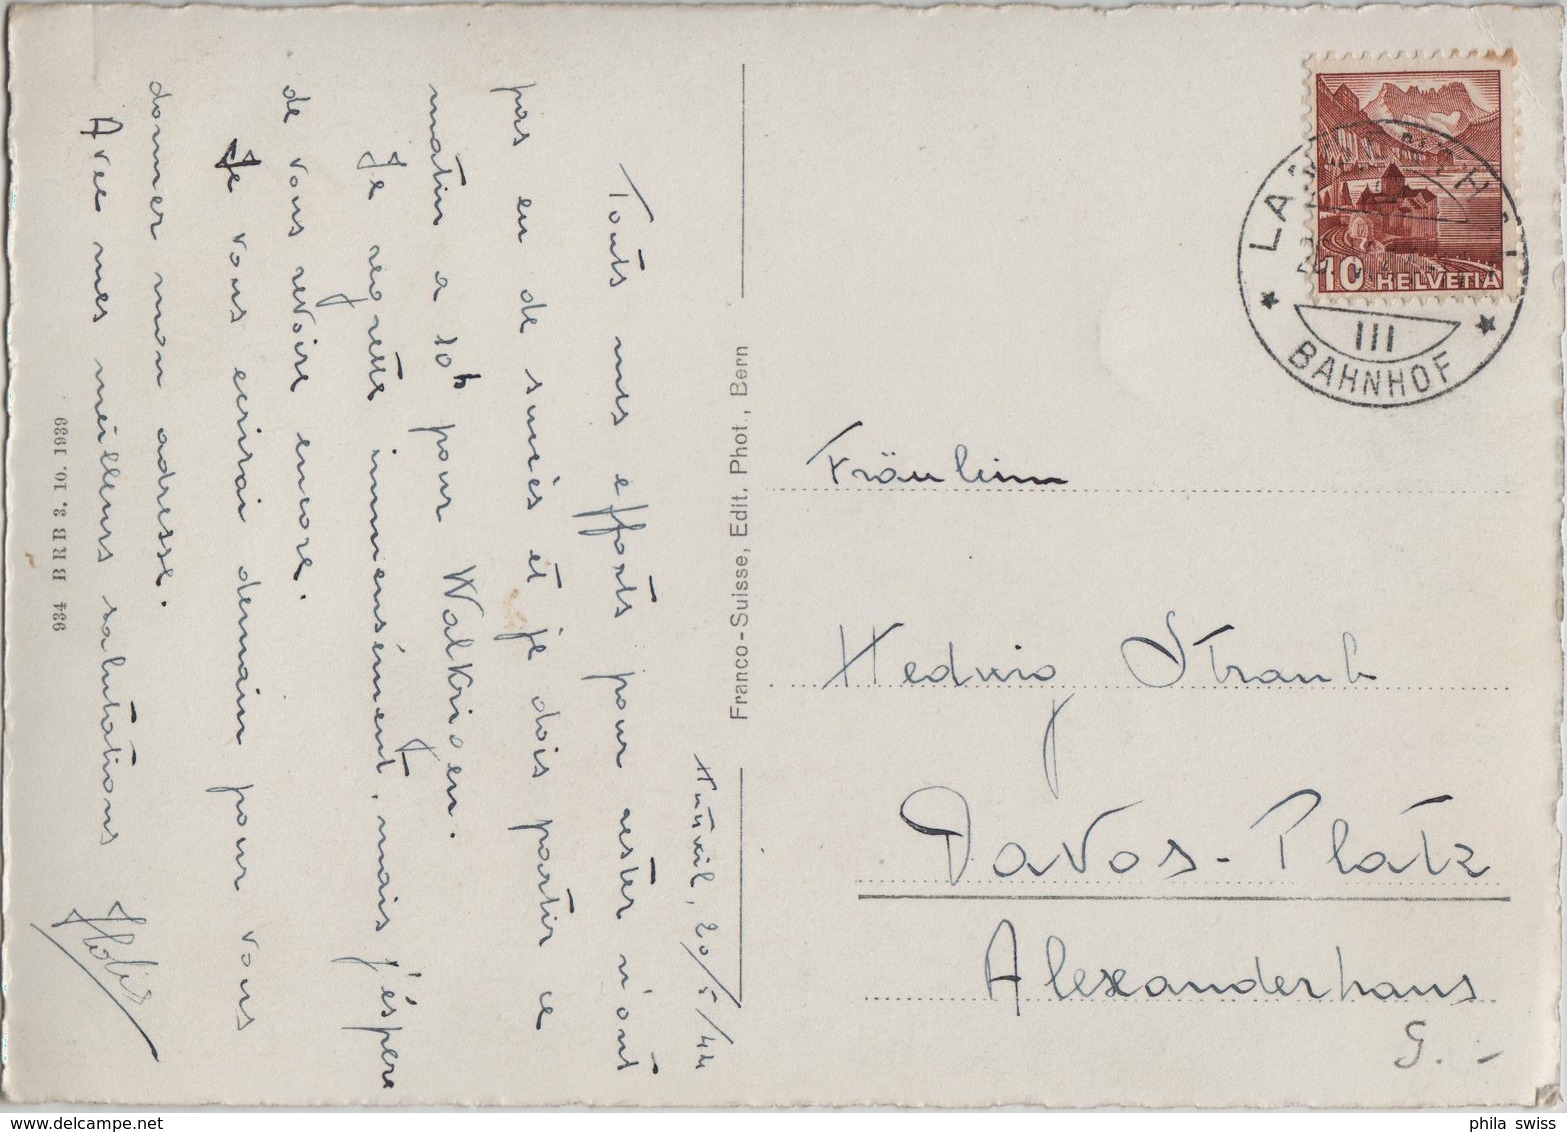 Hünwil, 20/5/44
Touts mes efforts pour rester n'ont
pas eu de succès et je dois partir ce
matin a 10h pour Walkringen.
Je regrette immensément, mais j'éspère
de vous revoire encore.
Je vous ecrirai demain pour vous
donner mon adresse.
Avec mes meilleurs salutations
934 BRB 3. 10. 1939
Franco-Suisse, Edit. Phot., Bern
10 HELVETIA
III
BAHNHOF
Fräulein
Hedwig Straub
Davos-Platz
Alexanderhaus
G.-
phila swiss